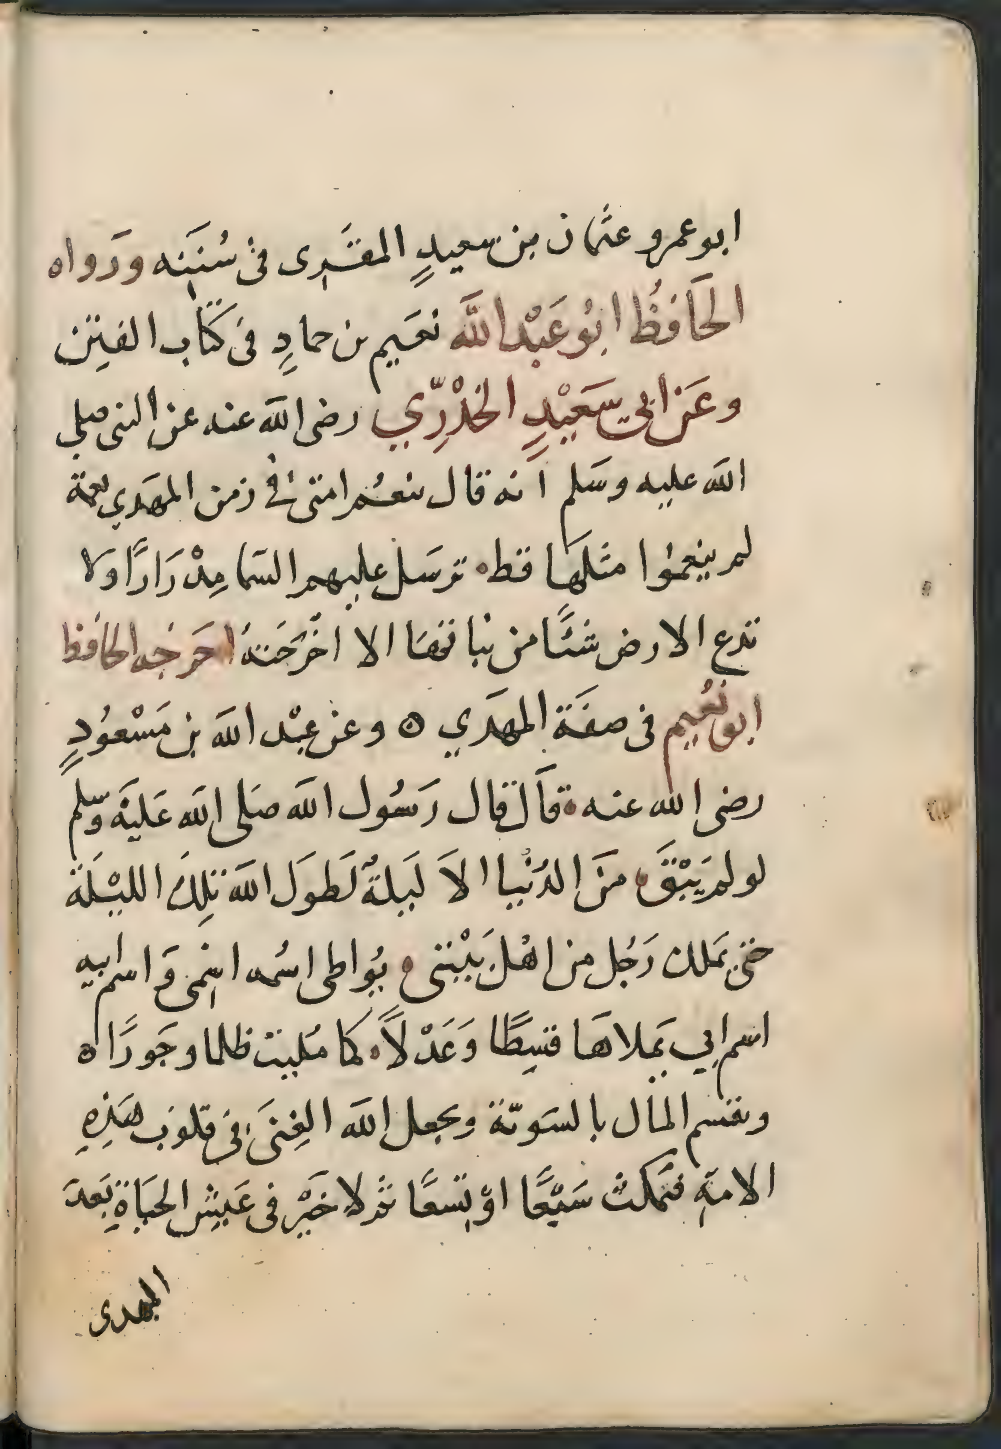 ابو عمرو عثمان بن سعيدٍ المقرى فى سُنَنِه ورواه
الحَافظُ ابُو عَبْد اللَّه نعَيم بن حمادٍ فى كتاب الفتن
وعَن ابي سَعَيْدٍ الخُدْرّي رضى الله عنه عن النبى صلى
الله عليه وسَلم انه قال تنعُم امتى فى زمن المهَدي نعمة
لم ينعموا مثلهَا قط ترسَل عليهم السّما مِدْرَارًا ولا
تدع الارض شئًا من نباتها الا اخْرَجَته اخرَجه الحافظ
ابو نُعيم فى صفَة المهَدي ه وعن عبْد الله بن مَسْعُودٍ
رضى الله عنه قاَل قال رَسُول الله صَلى الله عَليَه وسلم
لو لم يَبْقَ مَن الدُنْيا الاَ لَيلةٌ لَطَولَ الله تلكَ الليْلَة
حتى يَملك رَجُل من اهْل بَيْتى يُواطى اسُمه اسْمى وَاسم ابيه
اسم ابي يملاهَا قسِطًا وَعَدْلاً كما مُليت ظلما وجَورًا ه
ويقسم المال بالسَويّة ويجعل الله الغِنَى فى قلوب هَذِهِ
الامة فيمكث سَبْعًا اوْ تِسعًا ثم لا خَيْر فى عَيشِ الحيَاةِ بَعدَ
المهدى